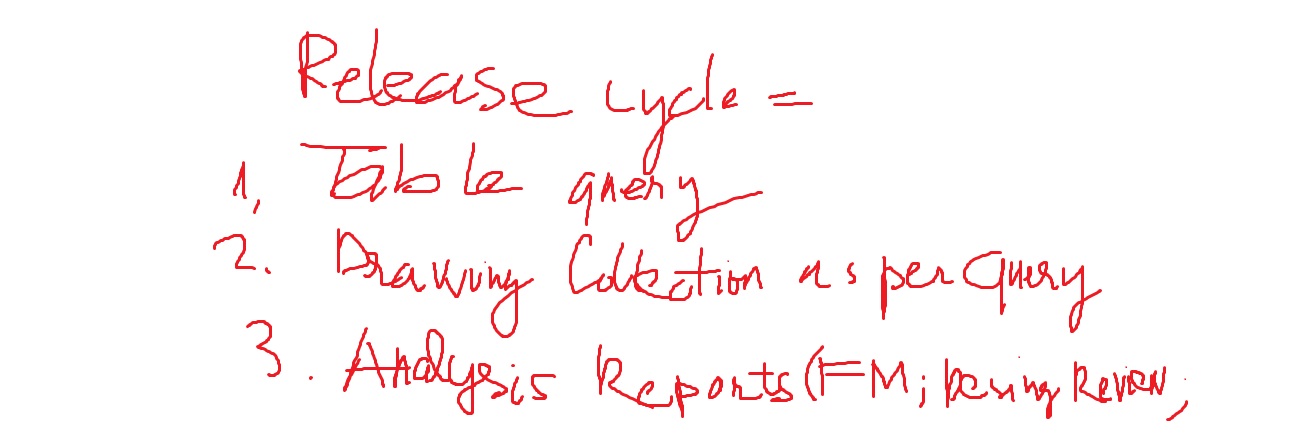 Release cycle =
1, Table query
2. Drawing Collection as per Query
3. Analysis Reports (FM; Review;